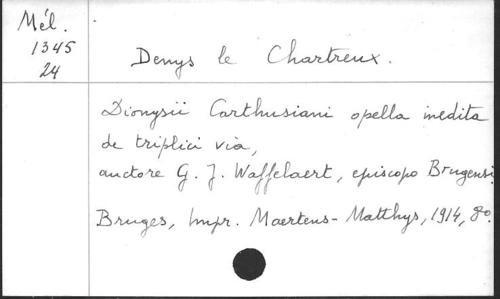 Mél.
1345
24
Denys le Chartreux.
Dionysii Carthusiani opella inedita
de triplici via,
auctore G. J. Waffelaert, episcopo Brugensi.
Bruges, Impr. Maertens-Matthys, 1914, 8o.